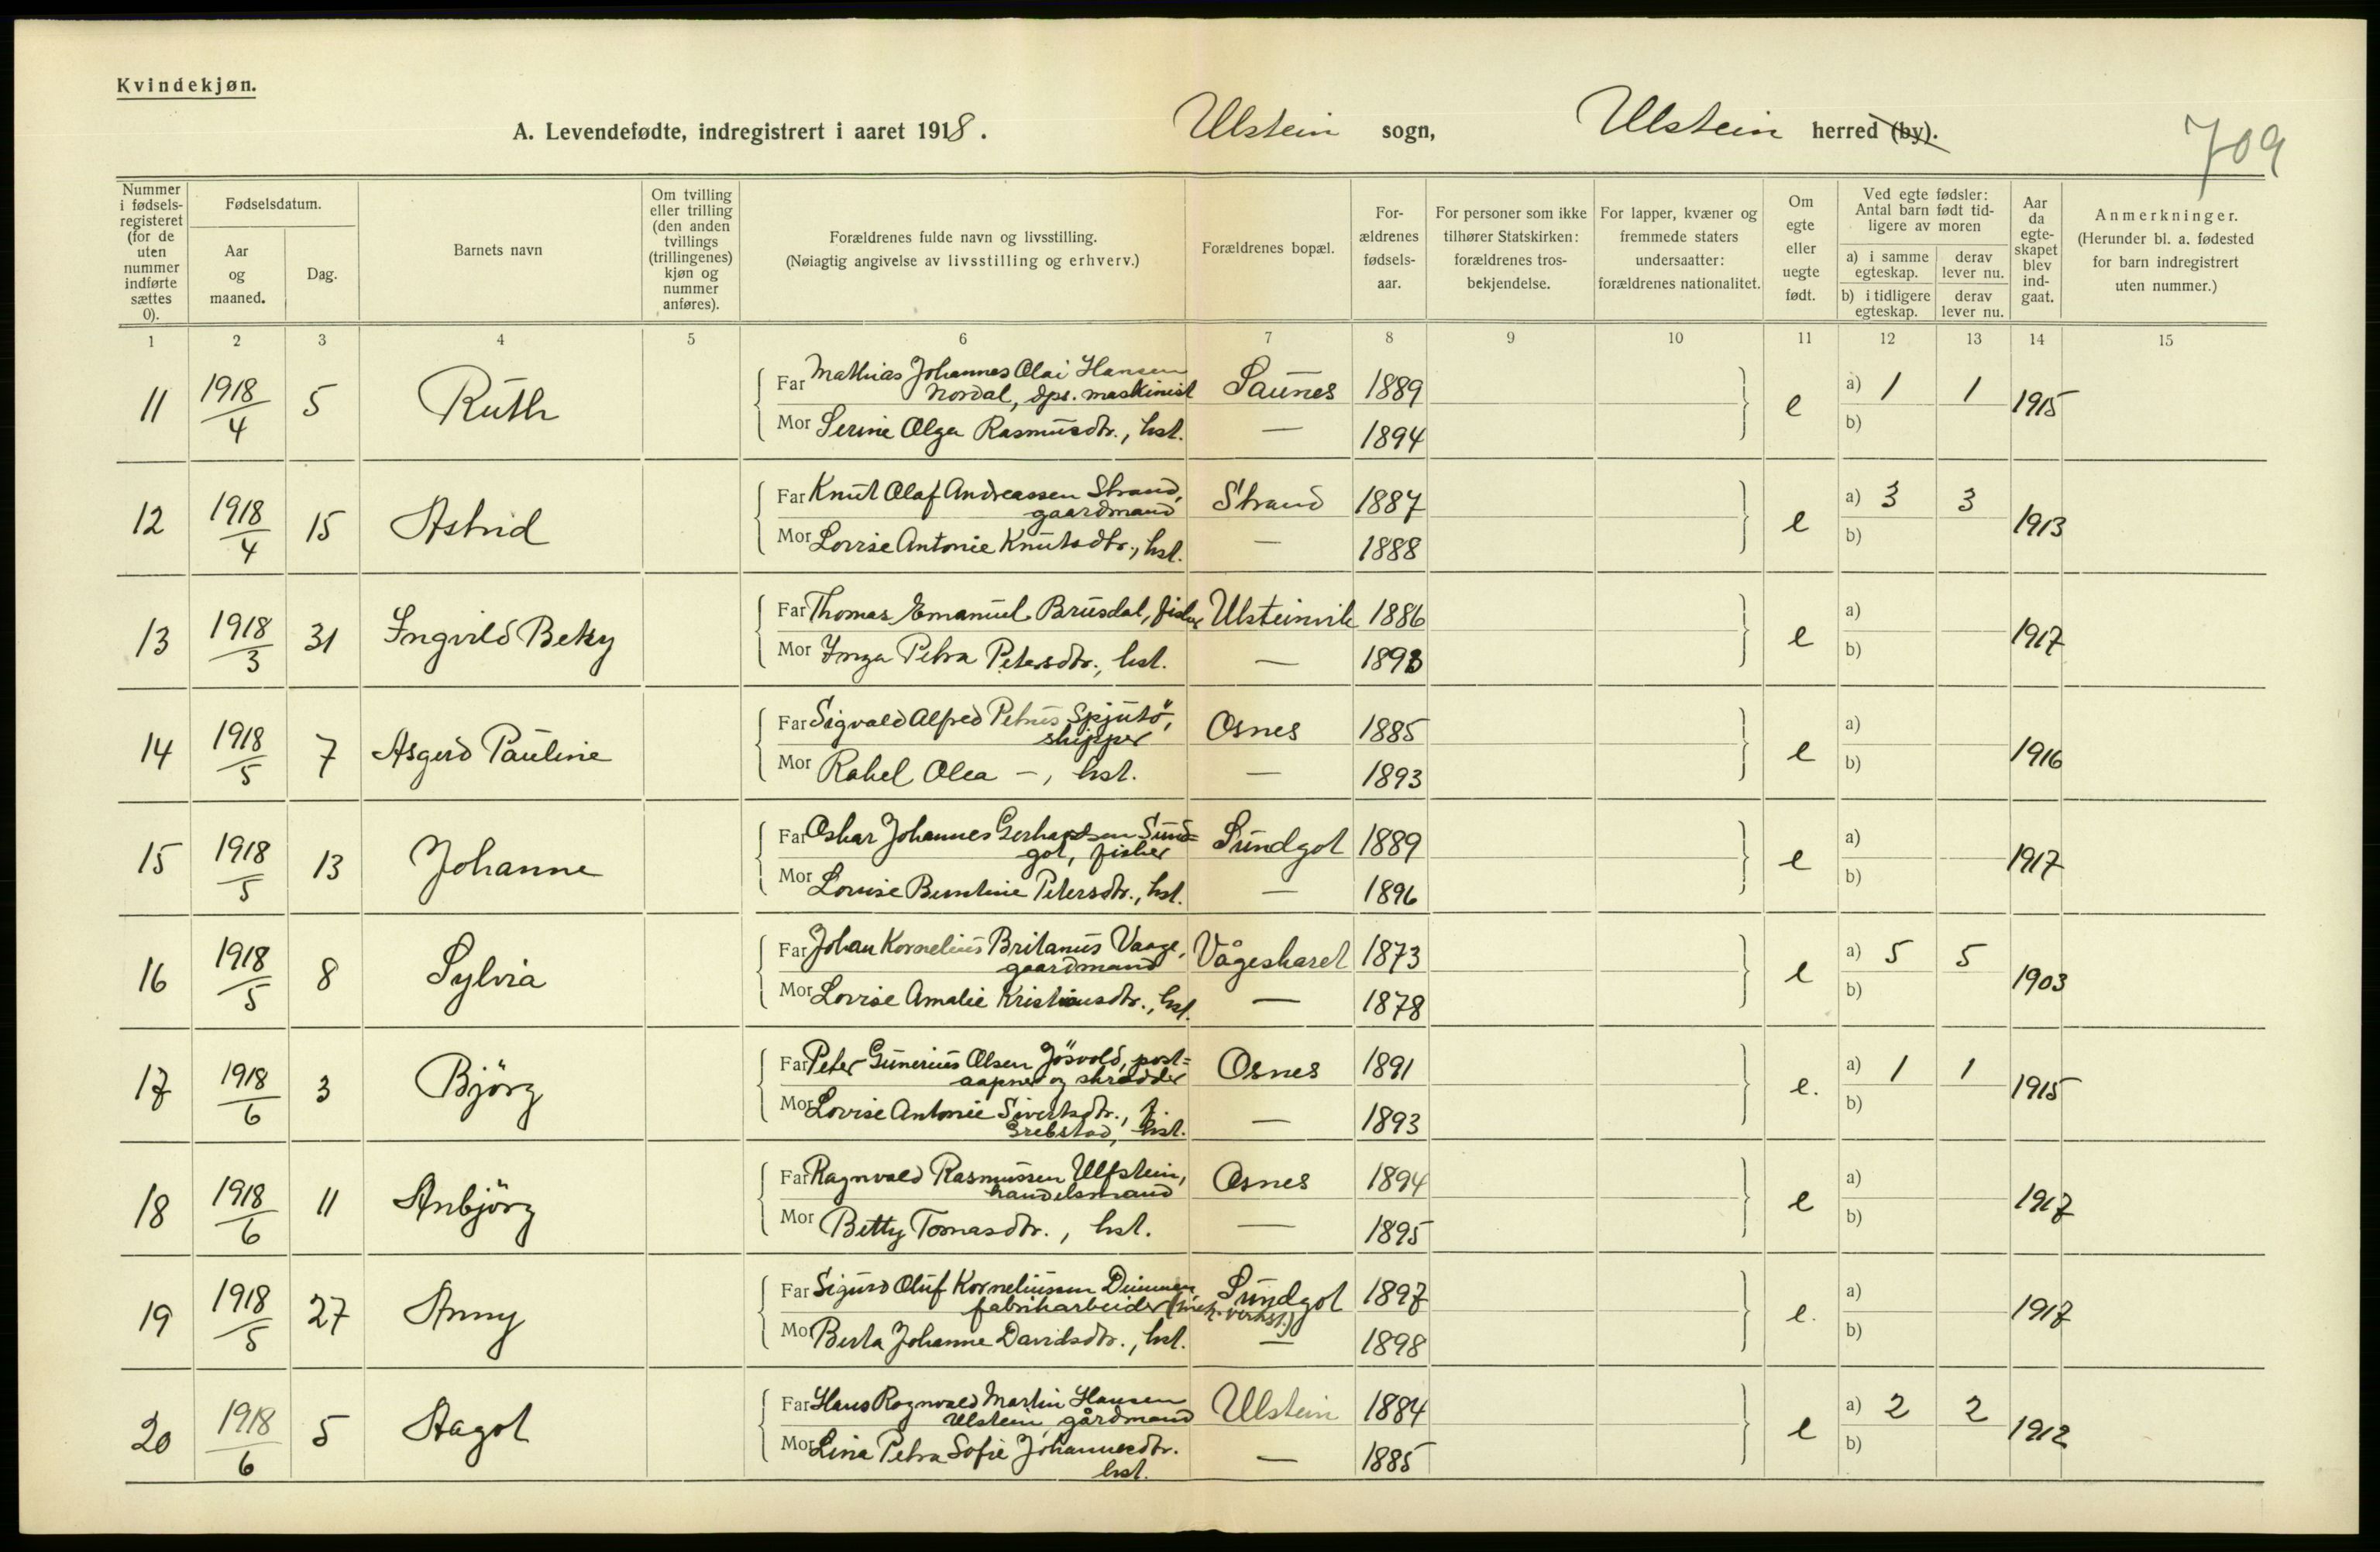 Kvindekjøn.
A. Levendefødte, indregistrert i aaret 1918. Ulstein sogn, Ulstein herred (by).
709
Nummer i fødsels-registeret (for de uten nummer indførte sættes 0).
Fødselsdatum.
Aar og maaned.
Dag.
Barnets navn
Om tvilling eller trilling (den anden tvillings (trillingenes) kjøn og nummer anføres).
Forældrenes fulde navn og livsstilling.
(Nøiagtig angivelse av livsstilling og erhverv.)
Forældrenes bopæl.
For-ældrenes fødsels-aar.
For personer som ikke tilhører Statskirken: forældrenes tros-bekjendelse.
For lapper, kvæner og fremmede staters undersaatter: forældrenes nationalitet.
Om egte eller uegte født.
Ved egte fødsler: Antal barn født tid-ligere av moren
a) i samme egteskap.
derav lever nu.
b) i tidligere egteskap.
derav lever nu.
Aar da egte-skapet blev ind-gaat.
Anmerkninger.
(Herunder bl. a. fødested for barn indregistrert uten nummer.)
1 2 3 4 5 6 7 8 9 10 11 12 13 14 15
11 1918/4 5 Ruth
Far Mathias Johannes Olai Hansen
Nordal, dps. maskinist Saunes 1889 e a) 1 1 1915
Mor Serine Olga Rasmusdtr., hst. — 1894 b)
12 1918/4 15 Astrid
Far Knut Olaf Andreassen Strand,
gaardmand Strand 1887 e a) 3 3 1913
Mor Lovise Antonie Knutsdtr., hst. — 1888 b)
13 1918/3 31 Ingvild Beky
Far Thomas Emanuel Brusdal, fisker Ulsteinvik 1886 e a) — 1917
Mor Inga Petra Petersdtr., hst. — 1893 b)
14 1918/5 7 Asgerd Pauline
Far Sigvald Alfred Petrus Spjutö,
skipper Osnes 1885 e a) — 1916
Mor Rakel Olea —, hst. — 1893 b)
15 1918/5 13 Johanne
Far Oskar Johannes Gerhardsen Sund=
got, fisker Sundgot 1889 e a) — 1917
Mor Lovise Berntine Petersdtr., hst. — 1896 b)
16 1918/5 8 Sylvia
Far Johan Kornelius Britanus Vaage,
gaardmand Vågeskaret 1873 e a) 5 5 1903
Mor Lovise Amalie Kristiansdtr., hst. — 1878 b)
17 1918/6 3 Björg
Far Peter Gunerius Olsen Jösvold, post=
aapner og skrædder Osnes 1891 e. a) 1 1 1915
Mor Lovise Antonie Sivertsdtr., f.
Grebstad, hst. — 1893 b)
18 1918/6 11 Anbjörg
Far Ragnvald Rasmussen Ulfstein,
handelsmand Osnes 1894 e a) — 1917
Mor Betty Tomasdtr., hst. — 1895 b)
19 1918/5 27 Anny
Far Sigurd Oluf Korneliussen Dimmen,
fabrikarbeider (mek. verkst.) Sundgot 1897 e. a) 1917
Mor Berta Johanne Davidsdtr., hst. — 1898 b)
20 1918/6 5 Aagot
Far Hans Ragnvald Martin Hansen
Ulstein, gårdmand Ulstein 1884 e a) 2 2 1912
Mor Lina Petra Sofie Johannesdtr.
hst. — 1885 b)